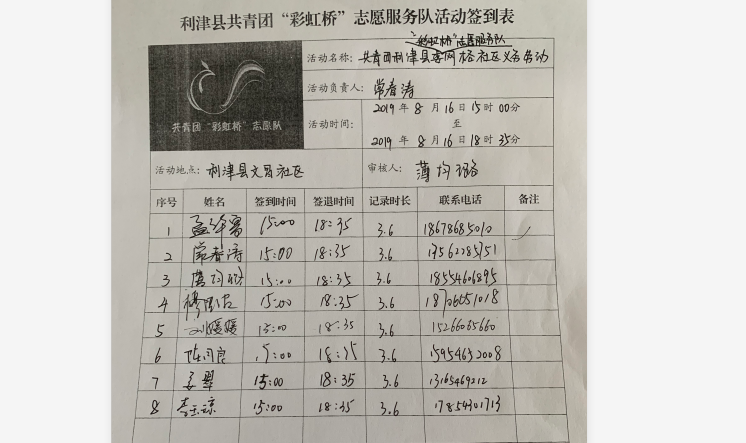 利津县共青团“彩虹桥”志愿服务队活动签到表
“彩虹桥”志愿服务队
活动名称： 共青团利津县委网格社区义务劳动
共青团“彩虹桥”志愿队
活动负责人： 常春涛
活动时间： 2019 年 8 月 16 日 15 时 00 分
至
2019 年 8 月 16 日 18 时 35 分
活动地点： 利津县文昌社区 审核人： 薄均璐
序号 姓名 签到时间 签退时间 记录时长 联系电话 备注
1 15:00 18:35 3.6 18678685010
2 常春涛 15:00 18:35 3.6 13562285751
3 15:00 18:35 3.6 18554606895
4 15:00 18:35 3.6
5 刘媛媛 15:00 18:35 3.6 15266065660
6 15:00 18:35 3.6 15954652008
7 姜翠 15:00 18:35 3.6 13165469212
8 李玉琼 15:00 18:35 3.6 17854301713